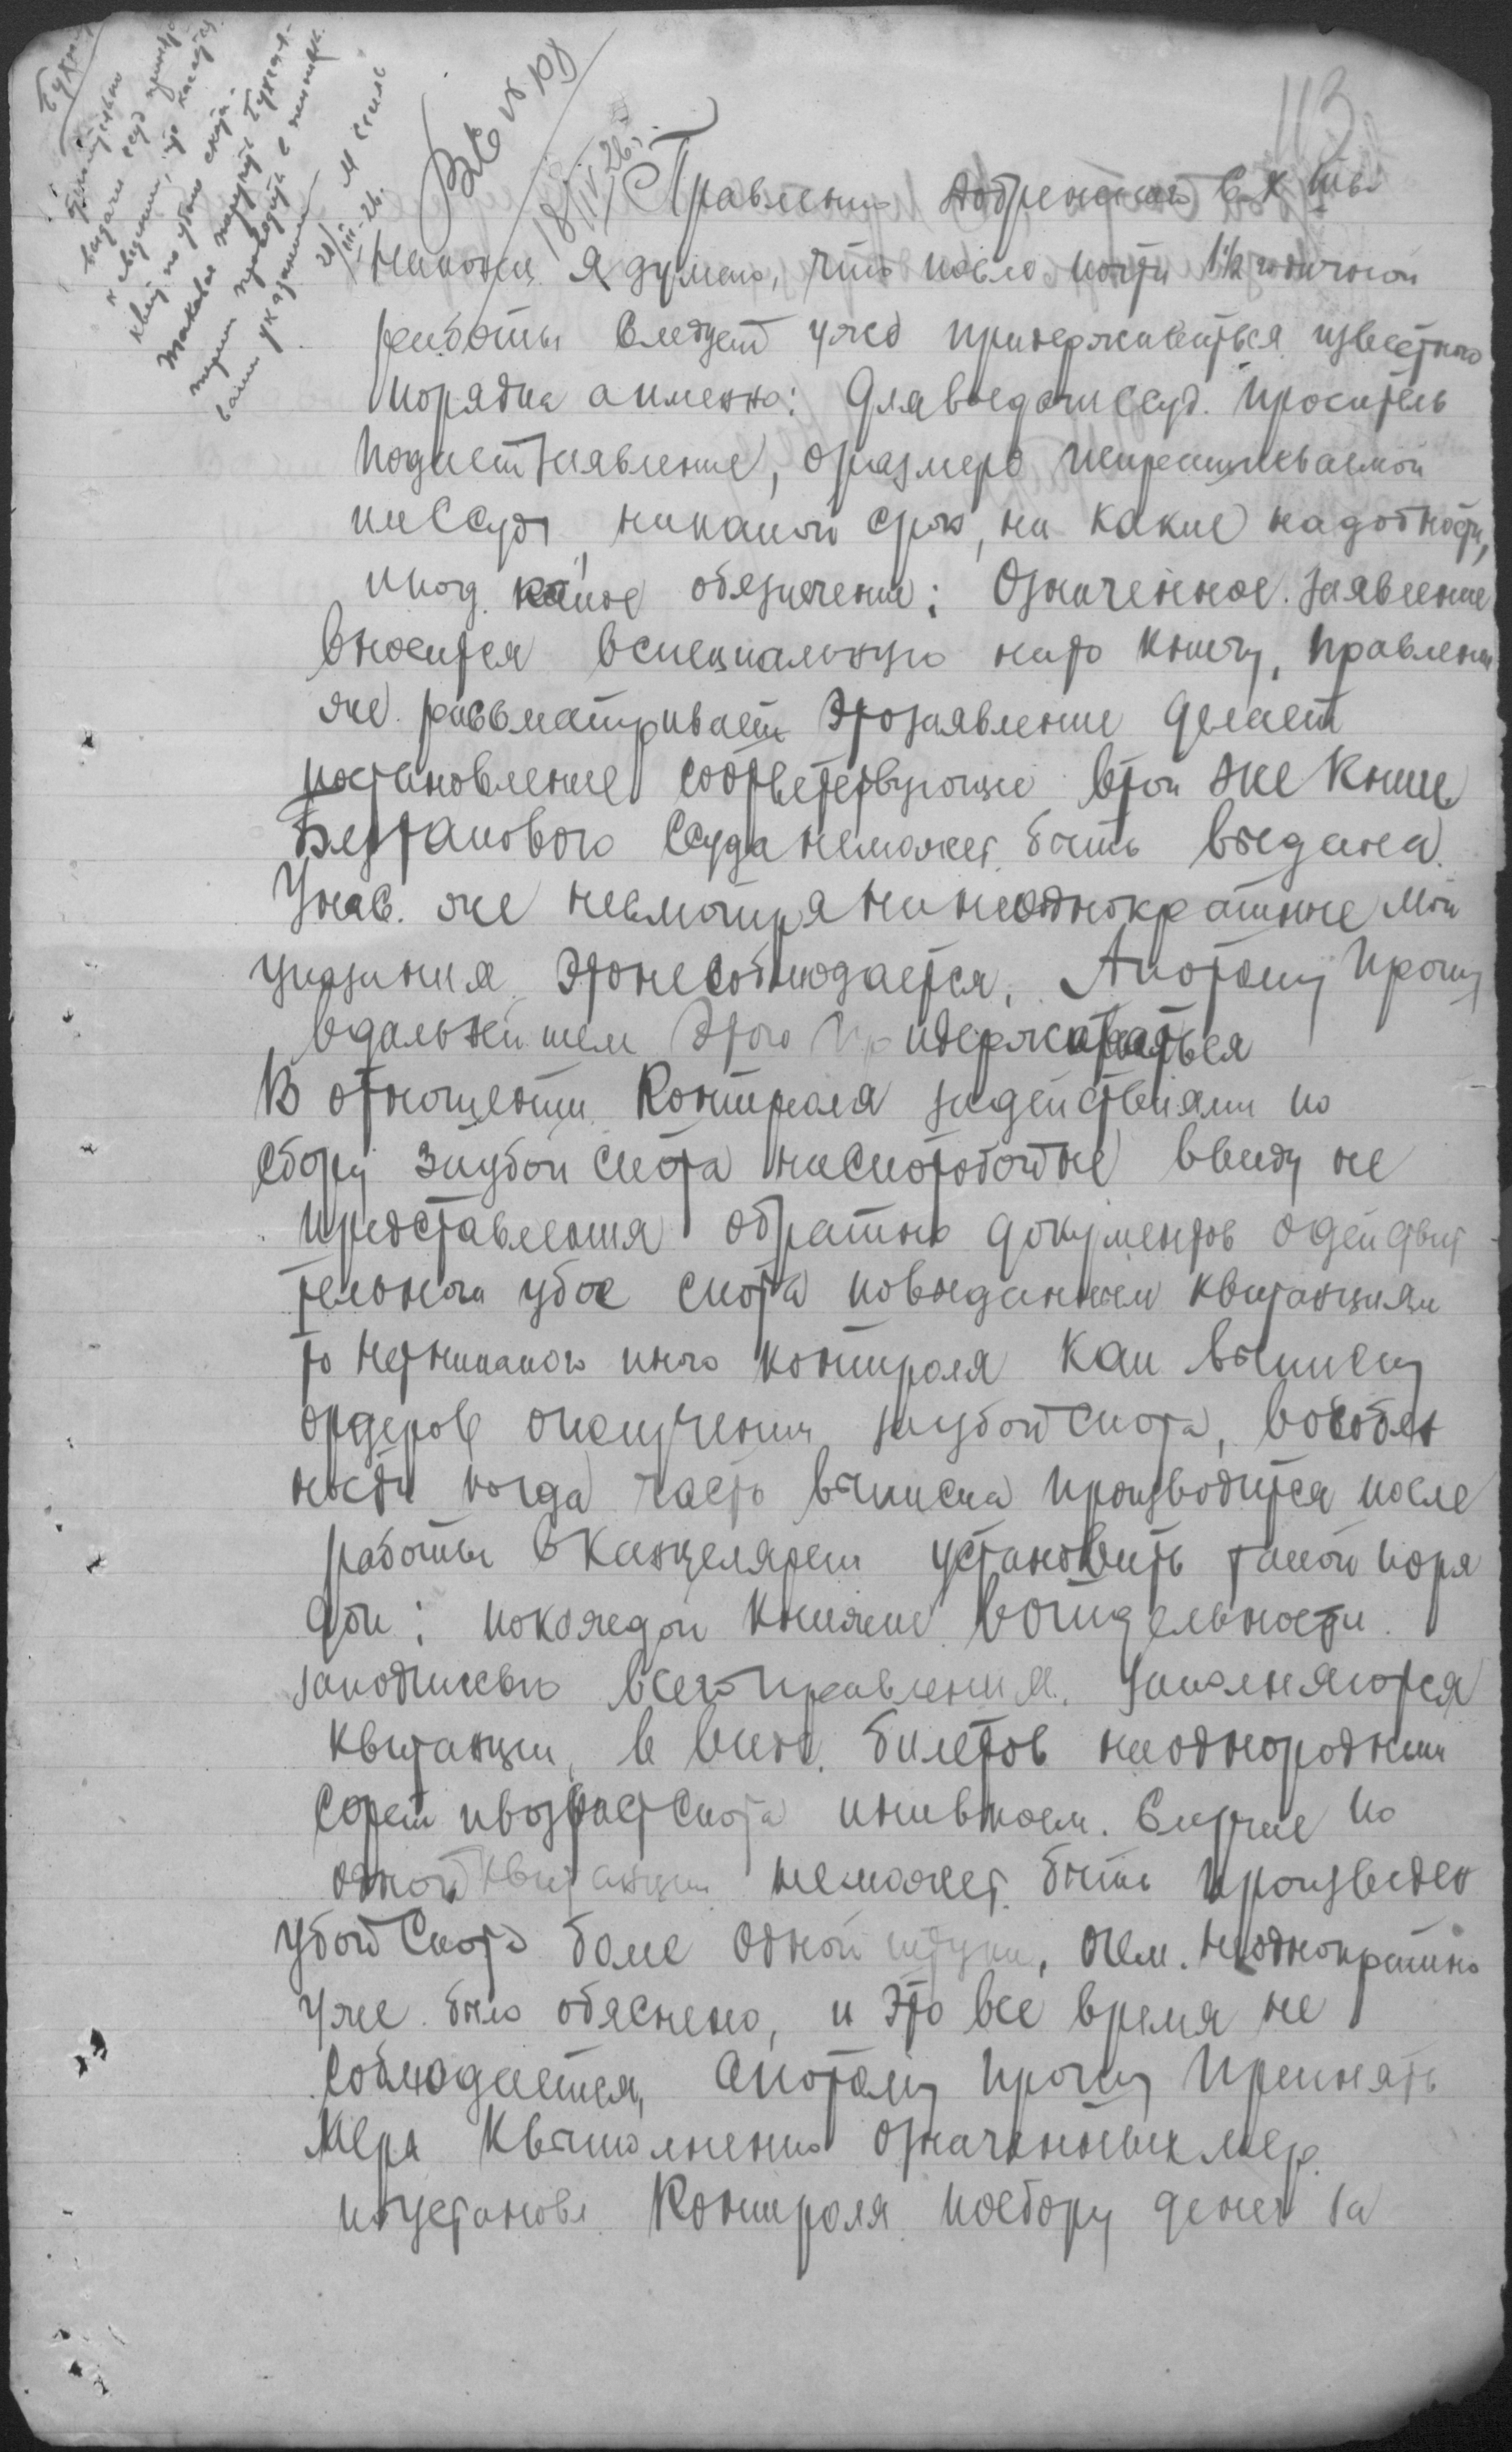 113
Вх № 108
18/IV 26 г.
21/III-26.
Правлению Добренского С. К. Т-ва
Наконец я думаю, что после почти 1½ годичной
работы следует уже придерживаться известного
порядка а именно: Для выдачи ссуд. проситель
подает заявление, о размере испрашиваемой
им ссуды, на какой срок, на какие надобности,
и под. какое обезпечение; Означенное. заявление
вносится в специальную на то книгу, правление
же. рассматривает это заявление делает
постановление соответствующие в той же книге
Без такового ссуда не может быть выдана.
У нас. же несмотря на неоднократные мои
указания это не соблюдается, А потому прошу
в дальнейшем этого придерживаться
В отношении контроля за действиями по
сбору за убой скота на скотобойне ввиду не
представления обратно документов о действи
тельном убое скота по выданным квитанциям
то нет никакого иного контроля как выписку
ордеров о получении за убой скота, в особен
ности когда часто выписка производится после
работы в канцелярии установить такой поря
док: по каждой книжке в отдельности
за подписью всего правления. заполняются
квитанции, в виде. билетов на однородный
сорт и возраст скота и ни в коем. случае по
одной квитанции не может быть произведен
убой скота более одной штуки, о чем. неоднократно
уже. было обяснено, и это все время не
соблюдается, а потому прошу принять
меры к выполнению означенных мер.
по установл. контроля по сбору денег за